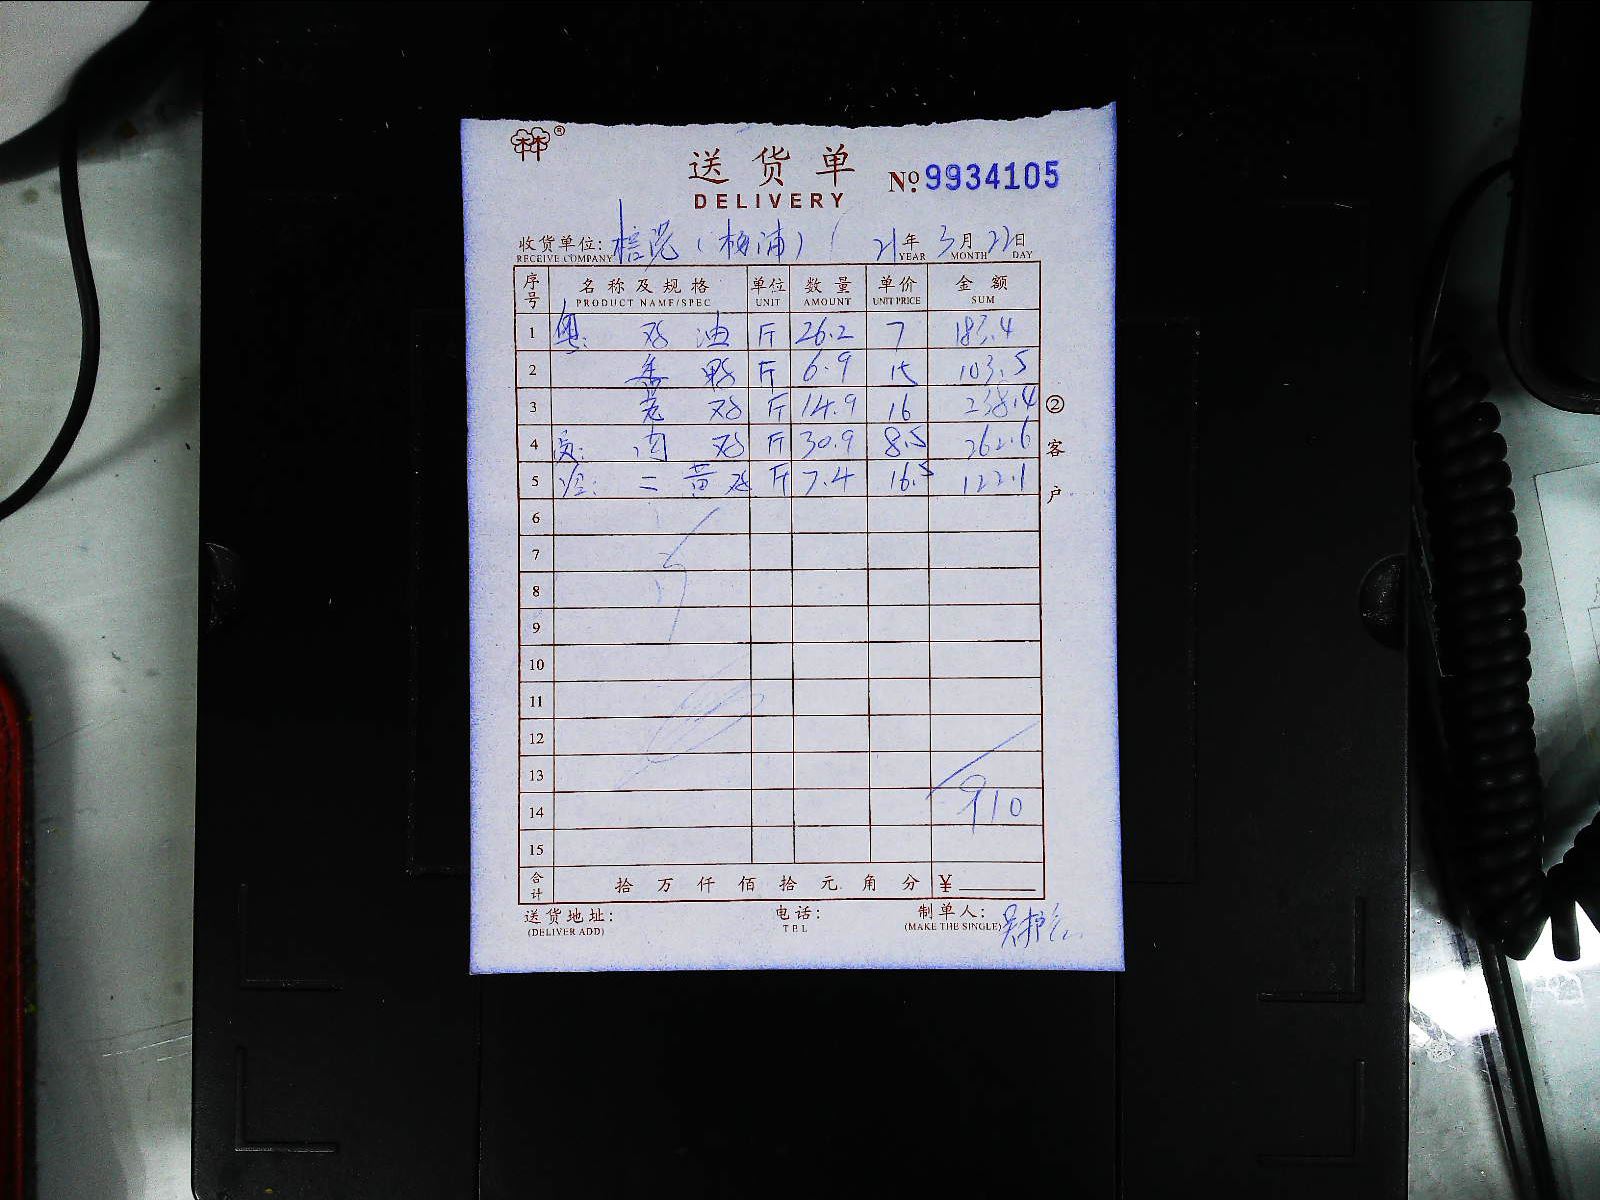 林林®
送货单
DELIVERY
№ 9934105
收货单位: (杨浦) 21年 3月 22日
RECEIVE COMPANY YEAR MONTH DAY
序号 名称及规格 单位 数量 单价 金额
PRODUCT NAME/SPEC UNIT AMOUNT UNIT PRICE SUM
1 粤: 鸡油 斤 26.2 7 183.4
2 鸭 斤 6.9 15 103.5
3 老鸡 斤 14.9 16 238.4
4 肉鸡 斤 30.9 8.5 262.6
5 二黄鸡 斤 7.4 16.5 122.1
6
7
8
9
10
11
12
13
14 910
15
合计 拾 万 仟 佰 拾 元 角 分 ¥
②客户
送货地址: 电话: 制单人:
(DELIVER ADD) TEL (MAKE THE SINGLE)